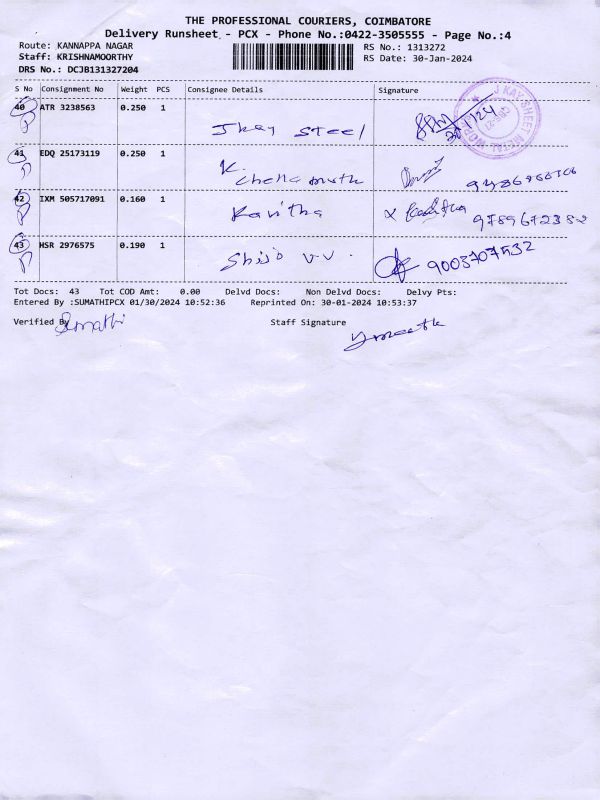 THE PROFESSIONAL COURIERS, COIMBATORE
Delivery Runsheet - PCX - Phone No.:0422-3505555 - Page No.:4
Route: KANNAPPA NAGAR RS No.: 1313272
Staff: KRISHNAMOORTHY RS Date: 30-Jan-2024
DRS No.: DCJB131327204
S No Consignment No Weight PCS Consignee Details Signature
40 ATR 3238563 0.250 1
Jkay Steel
J KAY SHEET METAL WORKS
41 EDQ 25173119 0.250 1
K.
Chella muthu
42 IXM 505717091 0.160 1
Kavitha 9789672382
43 HSR 2976575 0.190 1
Shijo V.V. 9003707532
Tot Docs: 43 Tot COD Amt: 0.00 Delvd Docs: Non Delvd Docs: Delvy Pts:
Entered By :SUMATHIPCX 01/30/2024 10:52:36 Reprinted On: 30-01-2024 10:53:37
Verified By Sumathi Staff Signature